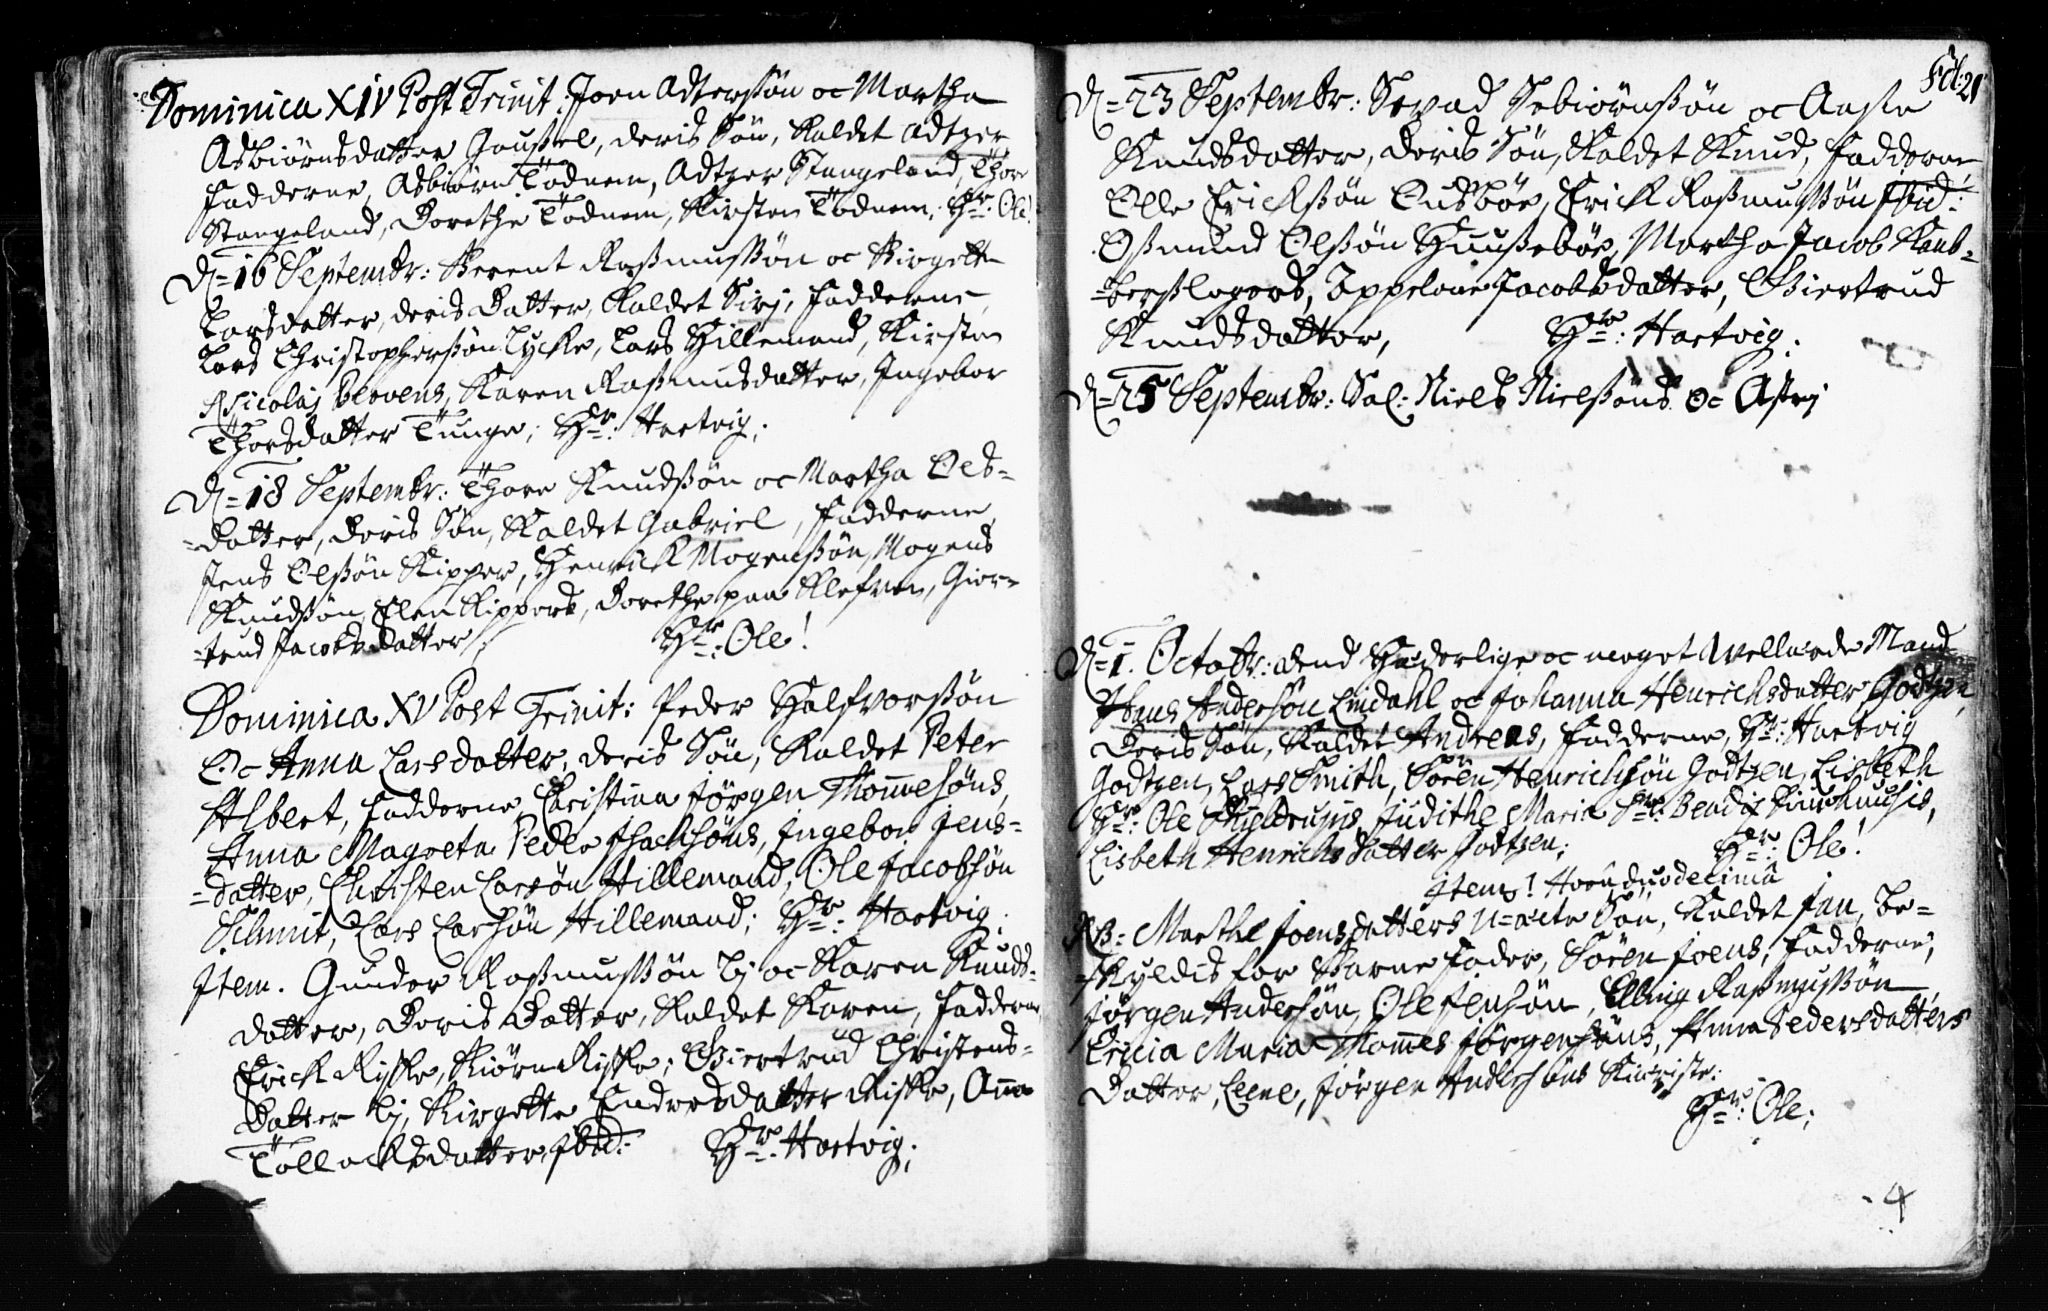 Dominica XIV Post Trinit: Joen Adzersøn oc Martha
Asbiørnsdatter Goußel, deris Søn, Kaldet Adtzer
Fadderne, Asbiørn Todnem, Adtzer Stangeland, Thore
Stangeland, Dorethe Todnem, Kirsten Todnem; Hr: Ole!
D=16 Septembr: Berent Raßmußøn oc Birgette
Larsdatter, deris Datter, Kaldet Siri, Fadderne,
Lars Christopherßøn Lycke, Lars Hillemand, Kirsten
Nicolaj, Karen Raßmusdatter, Ingebor
Thorsdatter Tunge; Hr: Hartvig;
D=18 Septembr: Thore Knudßøn oc Martha Ols-
=datter, Deris Søn, Kaldet Gabriel, Fadderne
Jens Olßøn Skipper, Henrick Mogenßøn, Mogens
Knudßøn, Elen Skippers, Dorethe paa Klefven, Gier-
=trud Jacobsdatter; Hr: Ole!
Dominica XV Post Trinit: Peder Halfvorßøn
Oc Anna Larsdatter, deris Søn, Kaldet Peter
Albert, Fadderne, Christina Jørgen Thommesøns,
Anna Magreta Peder Isachsøns, Ingebor Jens-
=datter, Christen Larsøn Hillemand, Ole Jacobsøn
Schmit, Lars Larsøn Hillemand; Hr: Hartvig;
Item. Gunder Raßmußøn Ly oc Karen Knuds-
datter, Deris Datter, Kaldet Karen, Fadderne
Erick Riske, Biørn Riske, Giertrud Christens-
Datter Ly, Birgette Endresdatter Riske, Anna
Tollacksdatter, Ibid: Hr: Hartvig;
Fol: 21
D=23 Septembr: Sevad Sebiørnßøn oc Aaste
Knudsdatter, Deris Søn, Kaldet Knud, Fadderne,
Olle Erickßøn Ousbøe, Erick Raßmußøn Ibid:
Oßmund Olßøn Huußebøe, Martha Jacob Kaab-
=berslagers, Appelone Jacobsdatter, Giertrud
Knudsdatter, Hr: Hartvig;
D=25 Septembr: Sal: Niels Nielßøns Oc Astrj
D=1. Octobr: dend Hæderlige oc meget Wellærde Mand
Hans Andersøn Lindahl oc Johanna Henrichsdatter Godtzen,
Deris Søn, Kaldet Andreas, Fadderne, Hr: Hartvig
Godtzen, Lars Smith, Søren Henrichsøn Godtzen, Lisbeth
Hr: Ole Skieldrups, Judithe Maria Sr: Bendix,
Lisbeth Henrichsdatter Godtzen; Hr: Ole!
Item! Hora duodecima
NB: Marthe Joensdatters U=ægte Søn, Kaldet Jan, Be-
=skyldis for Barne Fader, Søren Joens, Fadderne,
Jørgen Andersøn, Ole Jensøn, Elling Raßmußøn
Cricia Maria Thommes Jørgensøns, Anna Pedersdatters
Datter, Leene, Jørgen Andersøns
Hr: Ole;
4